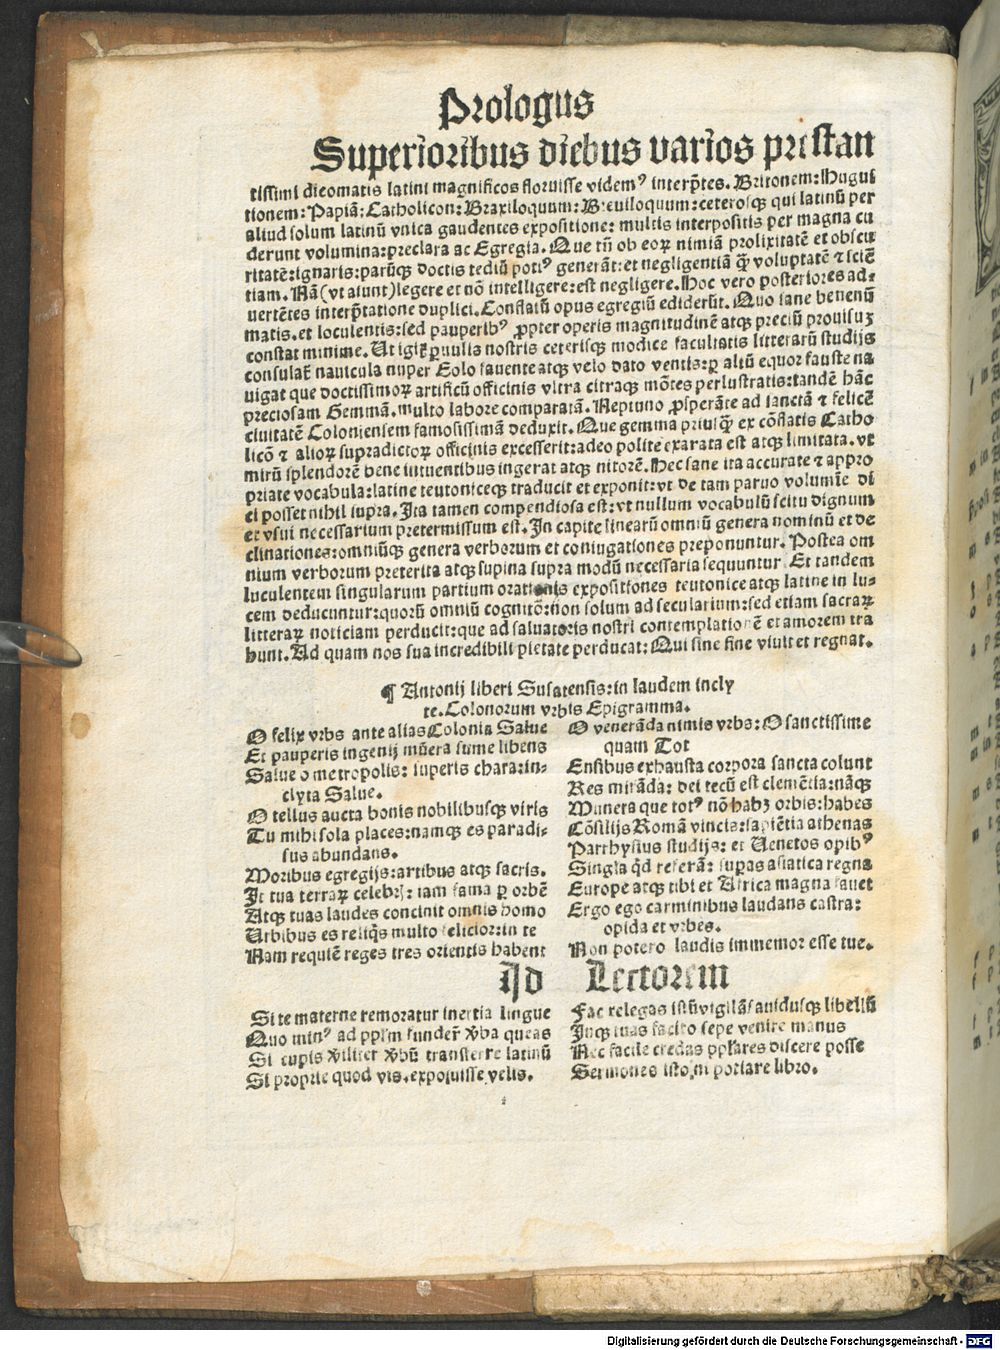 Prologus
Superioribus diebus varios prestan
tissimi dieomatis latini magnificos floruisse videmꝰ interp̄tes. Britonem: Hugui
tionem: Papiā: Catholicon: Braxiloquum: Breuiloquum: ceterosqꝫ qui latinū per
aliud solum latinū vnica gaudentes expositione: multis interpositis per magna cu
derunt volumina: preclara ac Egregia. Que tn̄ ob eoꝝ nimiā prolixitatē et obscu
ritatē: ignaris: parūqꝫ doctis tediū potiꝰ generāt: et negligentiā qꝫ̄ voluptatē ⁊ sciē
tiam. Nā (vt aiunt) legere et nō intelligere: est negligere. Hoc vero posteriores ad-
uertētes interp̄tatione duplici. Conflatū opus egregiū ediderūt. Quo sane benenū
matis. et loculentis: sed pauperibꝰ ꝓpter operis magnitudinē atqꝫ preciū prouisuꝫ
constat minime. Ut igit̄ ꝑuulis nostris ceterisqꝫ modice facultatis litterarū studijs
consulat̄ nauicula nuper Eolo fauente atqꝫ velo dato ventis: ꝑ altū equor fauste na
uigat que doctissimoꝝ artificū officinis vltra citraqꝫ mōtes perlustratis: tandē hāc
preciosam Gemmā. multo labore comparatā. Neptuno ꝓsperāte ad sanctā ⁊ felicē
ciuitatē Coloniensem famosissimā deduxit. Que gemma priusqꝫ̄ ex cōflatis Catho
licō ⁊ alioꝝ supradictoꝝ officinis excesserit: adeo polite exarata est atqꝫ limitata. vt
mirū splendorē bene intuentibus ingerat atqꝫ nitorē. Hec sane ita accurate ⁊ appro
priate vocabula: latine teutoniceqꝫ traducit et exponit: vt de tam paruo volumīe di
ci posset nihil supra. Ita tamen compendiosa est: vt nullum vocabulū scitu dignum
et vsui necessarium pretermissum est. In capite linearū omniū genera nominū et de
clinationes: omniūqꝫ genera verborum et coniugationes preponuntur. Postea om
nium verborum preterita atqꝫ supina supra modū necessaria sequuntur. Et tandem
luculentem singularum partium orationis expositiones teutonice atqꝫ latine in lu-
cem deducuntur: quorū omniū cognitō: non solum ad secularium: sed etiam sacraꝝ
litteraꝝ noticiam perducit: que ad saluatoris nostri contemplationē et amorem tra
hunt. Ad quam nos sua incredibili pietate perducat: Qui sine fine viuit et regnat.
¶ Antonij liberi Susatensis: in laudem incly
te. Colonorum vrbis Epigramma.
O felix vrbs ante alias Colonia Salue
Et pauperis ingenij mūera sume libens
Salue o metropolis: superis chara: in-
clyta Salue.
O tellus aucta bonis nobilibusqꝫ viris
Tu mihi sola places: namqꝫ es paradi-
sus abundans.
Moribus egregijs: artibus atqꝫ sacris.
It tua terraꝝ celebrꝭ: iam fama ꝑ orbē
Atqꝫ tuas laudes concinit omnis homo
Urbibus es reliq̄s multo felicior: in te
Nam requiē reges tres orientis habent
O venerāda nimis vrbs: O sanctissime
quam Tot
Ensibus exhausta corpora sancta colunt
Res mirāda: dei tecū est clemētia: nāqꝫ
Munera que totꝰ nō habꝫ orbis: habes
Cōsilijs Romā vincis: sapiētia athenas
Parrhysius studijs: et Uenetos opibꝰ
Singla q̇d referā: supas asiatica regna
Europe atqꝫ tibi et Africa magna fauet
Ergo ego carminibus laudans castra:
opida et vrbes.
Non potero laudis immemor esse tue.
Ad Lectorem
Si te materne remoratur inertia lingue
Quo minꝰ ad pplm̄ funder̄ v̄ba queas
Si cupis v̄iliter v̄bū transferre latinū
Si proprie quod vis. exposuisse velis.
Fac relegas istū vigilās auidusqꝫ libellū
Inqꝫ tuas facito sepe venire manus
Nec facile credas pplares discere posse
Sermones isto, ni portare libro.
Digitalisierung gefördert durch die Deutsche Forschungsgemeinschaft - DFG